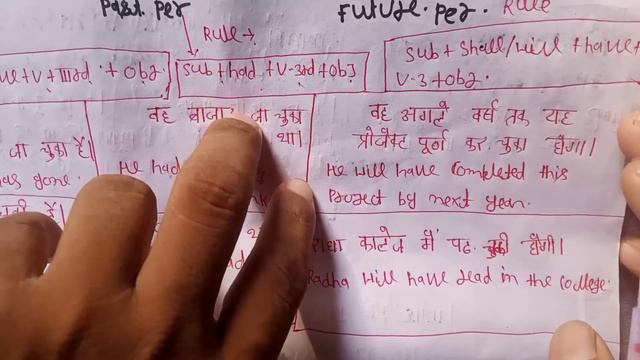 Past. Per
Future. Per. Rule
Rule →
ve + V + IIIrd. + Obj.
Sub + had + V-3rd + Obj
Sub + Shall/will + have +
V-3 + Obj.
वह बाजार जा चुका
था।
He had
जा चुका है।
has gone.
वह अगले वर्ष तक यह
प्रोजेक्ट पूर्ण कर चुका होगा।
He will have completed this
Project by next year.
राधा कालेज में पढ़ चुकी होगी।
Radha will have read in the college.